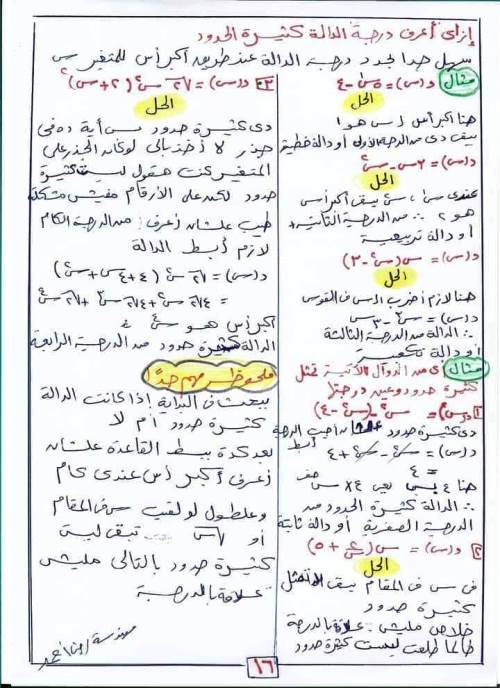 إزاى أعرف درجة الدالة كثيرة الحدود
سهل جدا بحدد درجة الدالة عن طريق أكبر أس للمتغير س
مثال د(س) = ٥س¹ - ٤
الحل
هنا أكبر أس لـ س هو ١
يبقى دى من الدرجة الأولى أو دالة خطية
د(س) = ٢س - س²
الحل
عندى س¹ ، س² يبقى أكبر أس
هو ٢ ∴ من الدرجة الثانية
أو دالة تربيعية
د(س) = س(س² - ٣)
الحل
هنا لازم أضرب الـ س فى القوس
د(س) = س³ - ٣س
∴ الدالة من الدرجة الثالثة
أو دالة تكعيبية
مثال أى من الدوال الآتية تمثل
كثيرة حدود وعين درجتها
١ د(س) = س² - (س² - ٤)
دى كثيرة حدود علشان أجيب الدرجة أبسط
د(س) = س² - س² + ٤
= ٤
هنا ٤ بس يعنى ٤ × س صفر
∴ الدالة كثيرة الحدود من
الدرجة الصفرية أو دالة ثابتة
٢ د(س) = س(٤/س + ٥)
الحل
فى س فى المقام يبقى لا تمثل
كثيرة حدود
خلاص مليش علاقة بالدرجة
طالما طلعت ليست كثيرة حدود
٣ د(س) = √٢ س² (٢ + س)²
الحل
دى كثيرة حدود مس أية ده فى
جذر لا أخذ بالى لو كان الجذر على
المتغير كنت هقول ليست كثيرة
حدود لكن على الأرقام مفيش مشكلة
طيب علشان أعرف من الدرجة الكام
لازم أبسط الدالة
د(س) = √٢ س² (٤ + ٤س + س²)
= ٤√٢ س² + ٤√٢ س³ + √٢ س⁴
أكبر أس هو س⁴
الدالة كثيرة حدود من الدرجة الرابعة
ملحوظة مهم جدا
ببحث فى البداية إذا كانت الدالة
كثيرة حدود أم لا
بعد كدة ببسط القاعدة علشان
أعرف أكبر أس عندى كام
وعلطول لو لقيت س فى المقام
أو √س تبقى ليست
كثيرة حدود بالتالى مليش
علاقة بالدرجة
١٦